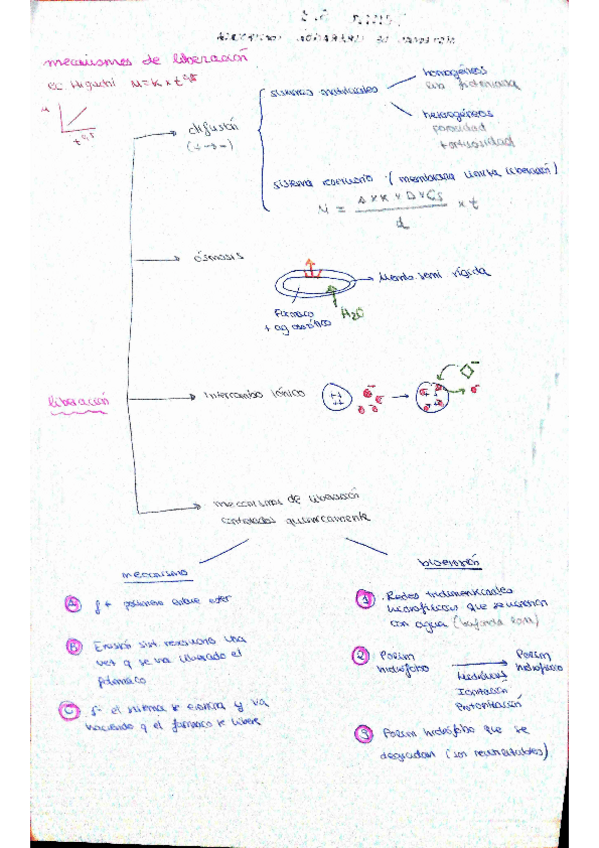 mecanismos de liberación
ec Higuchi M = K x t^0,5
M
t^0,5
difusión
(+ → -)
sistemas matriciales
homogéneos
heterogéneos
porosidad
tortuosidad
sistema reservorio (membrana limita liberación)
M = A x K x D x Cs / d x t
ósmosis
Memb. semi rígida
Fármaco
+ ag osmótico
H2O
liberación
Intercambio iónico
mecanismos de liberación
controlados químicamente
mecanismo
bioerosión
A
+ polímero enlace ester
B
Erosión sist. reservorio una
vez q se ha liberado el
fármaco
C
Si el sistema se erosiona y va
haciendo q el fármaco se libere
1
Redes tridimensionales
hidrofílicas que se
con agua
2
Polím
hidrófobo
Polím
hidrofílico
Hidrólisis
Ionización
Protonización
3
Polím hidrófobo que se
degradan